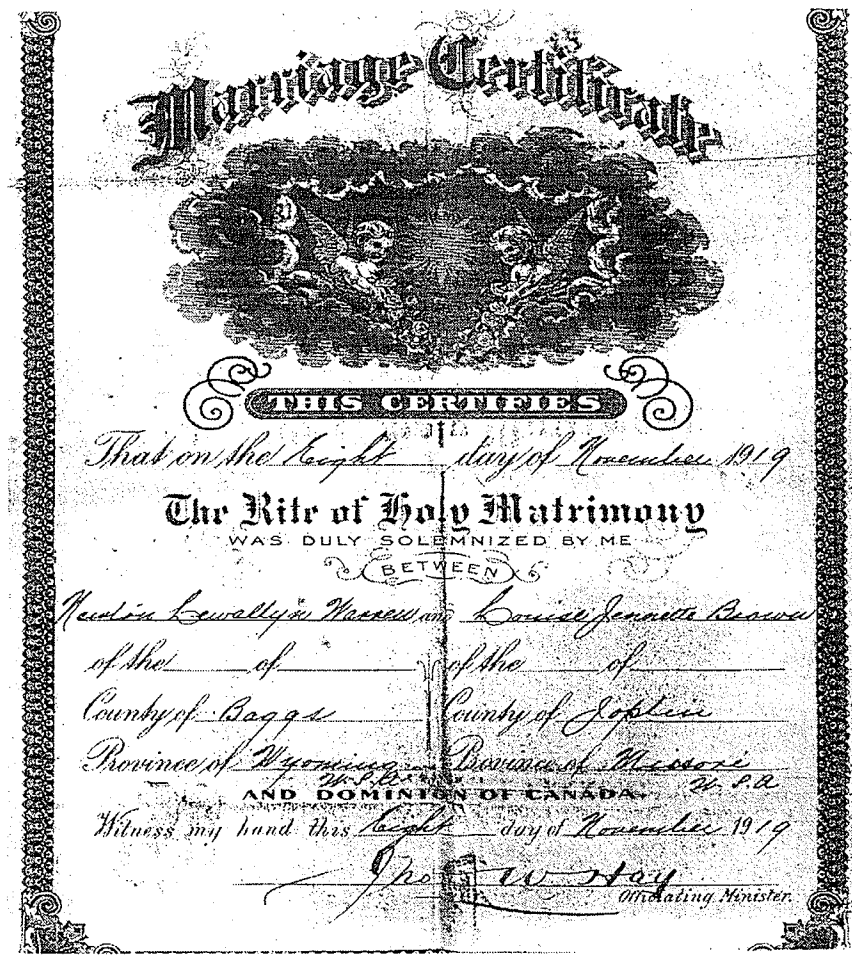 Marriage Certificate
THIS CERTIFIES
That on the Eight day of November 1919
The Rite of Holy Matrimony
WAS DULY SOLEMNIZED BY ME
BETWEEN
Newton Lewallyn Warren and Louise Jennette Brown
of the of of the of
County of Baggs County of Joplin
Province of Wyoming Province of Missori
U.S.A. U.S.A
AND DOMINION OF CANADA.
Witness my hand this Eight day of November 1919
Jno W Hay
Officiating Minister.